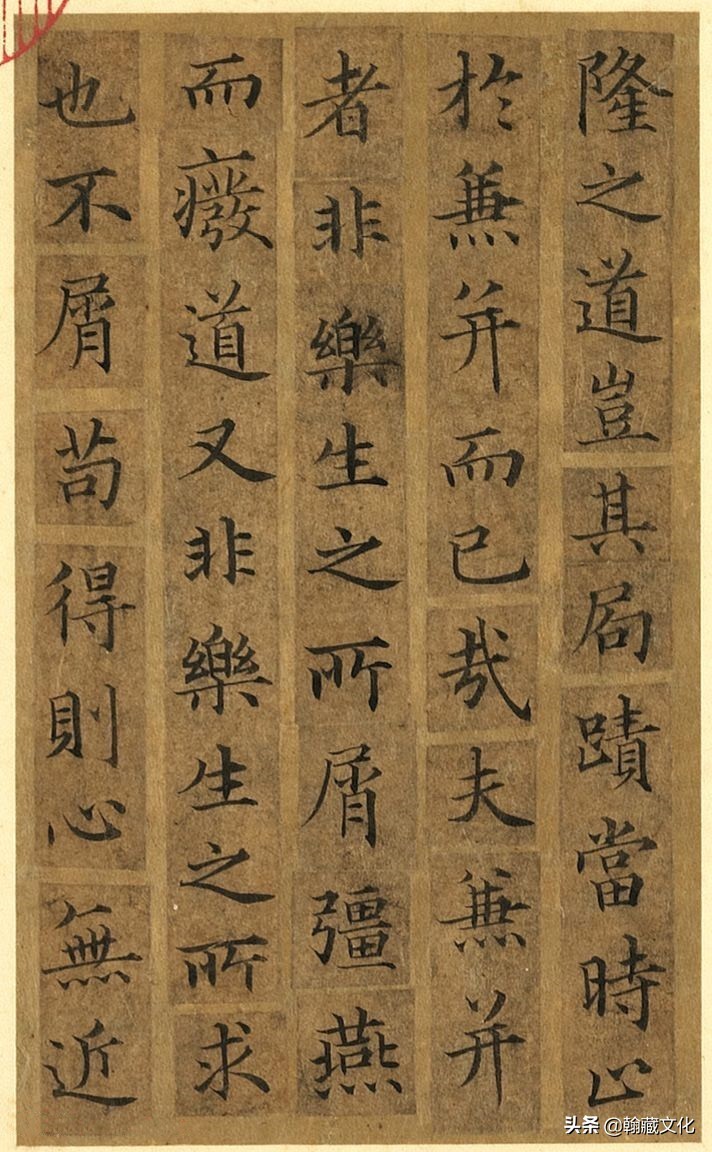 隆之道豈其局蹟當時止
於兼并而已哉夫兼并
者非樂生之所屑彊燕
而癈道又非樂生之所求
也不屑苟得則心無近
头条 @翰藏文化